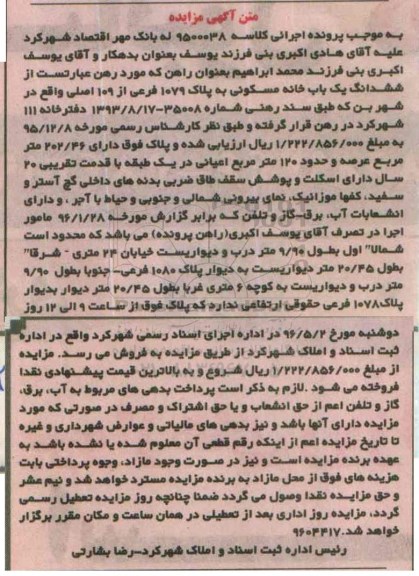 متن آگهی مزایده
به موجب پرونده اجرائی کلاسه ۹۵۰۰۰۳۸ له بانک مهر اقتصاد شهرکرد
علیه آقای هادی اکبری بنی فرزند یوسف بعنوان بدهکار و آقای یوسف
اکبری بنی فرزند محمد ابراهیم بعنوان راهن که مورد رهن عبارتست از
ششدانگ یک باب خانه مسکونی به پلاک ۱۰۷۹ فرعی از ۱۰۹ اصلی واقع در
شهر بن که طبق سند رهنی شماره ۳۵۰۰۸-۱۳۹۳/۸/۱۷ دفترخانه ۱۱۱
شهرکرد در رهن قرار گرفته و طبق نظر کارشناس رسمی مورخه ۹۵/۱۲/۸
به مبلغ ۱/۲۲۲/۸۵۶/۰۰۰ ریال ارزیابی شده و پلاک فوق دارای ۲۰۲/۴۶ متر
مربع عرصه و حدود ۱۲۰ متر مربع اعیانی در یک طبقه با قدمت تقریبی ۲۰
سال دارای اسکلت و پوشش سقف طاق ضربی بدنه های داخلی گچ آستر و
سفید، کفها موزائیک، نمای بیرونی شمالی و جنوبی و حیاط با آجر ، و دارای
انشعابات آب، برق-گاز و تلفن که برابر گزارش مورخه ۹۶/۱/۲۸ مامور
اجرا در تصرف آقای یوسف اکبری(راهن پرونده) می باشد که محدود است
شمالا" اول بطول ۹/۹۰ متر درب و دیواریست خیابان ۲۴ متری - شرقا"
بطول ۲۰/۴۵ متر دیواریست به دیوار پلاک ۱۰۸۰ فرعی- جنوبا بطول ۹/۹۰
متر درب و دیواریست به کوچه ۶ متری غربا بطول ۲۰/۴۵ متر دیوار بدیوار
پلاک۱۰۷۸ فرعی حقوقی ارتفاعی ندارد که پلاک فوق از ساعت ۹ الی ۱۲ روز
دوشنبه مورخ ۹۶/۵/۲ در اداره اجرای اسناد رسمی شهرکرد واقع در اداره
ثبت اسناد و املاک شهرکرد از طریق مزایده به فروش می رسد. مزایده
از مبلغ ۱/۲۲۲/۸۵۶/۰۰۰ ریال شروع و به بالاترین قیمت پیشنهادی نقدا
فروخته می شود .لازم به ذکر است پرداخت بدهی های مربوط به آب، برق،
گاز و تلفن اعم از حق انشعاب و یا حق اشتراک و مصرف در صورتی که مورد
مزایده دارای آنها باشد و نیز بدهی های مالیاتی و عوارض شهرداری و غیره
تا تاریخ مزایده اعم از اینکه رقم قطعی آن معلوم شده یا نشده باشد به
عهده برنده مزایده است و نیز در صورت وجود مازاد، وجوه پرداختی بابت
هزینه های فوق از محل مازاد به برنده مزایده مسترد خواهد شد و نیم عشر
و حق مزایده نقدا وصول می گردد ضمنا چنانچه روز مزایده تعطیل رسمی
گردد، مزایده روز اداری بعد از تعطیلی در همان ساعت و مکان مقرر برگزار
خواهد شد.۹۶۰۴۴۱۷
رئیس اداره ثبت اسناد و املاک شهرکرد-رضا بشارتی